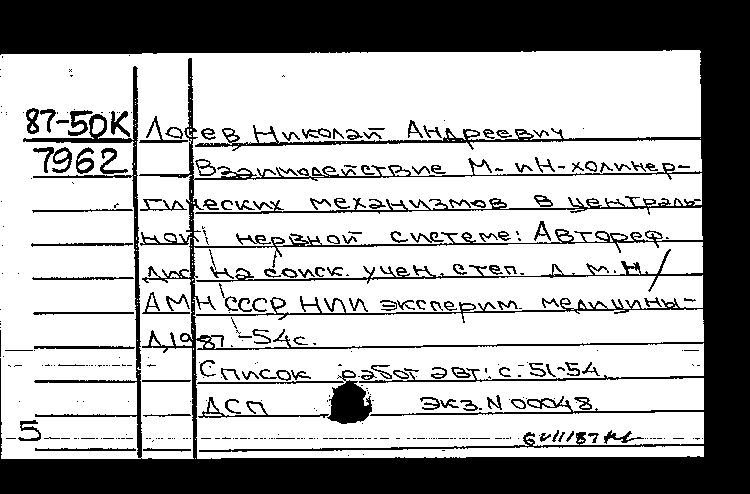 87-50К Лосев Николай Андреевич
7962 Взаимодействие М- и Н-холинер-
гических механизмов в централь-
ной нервной системе: Автореф.
дис. на соиск. учен. степ. д.м.н. /
АМН СССР, НИИ эксперим. медицины-
Л, 1987. -54с.
Список работ авт.: с. 51-54.
ДСП экз. N 00048.
5